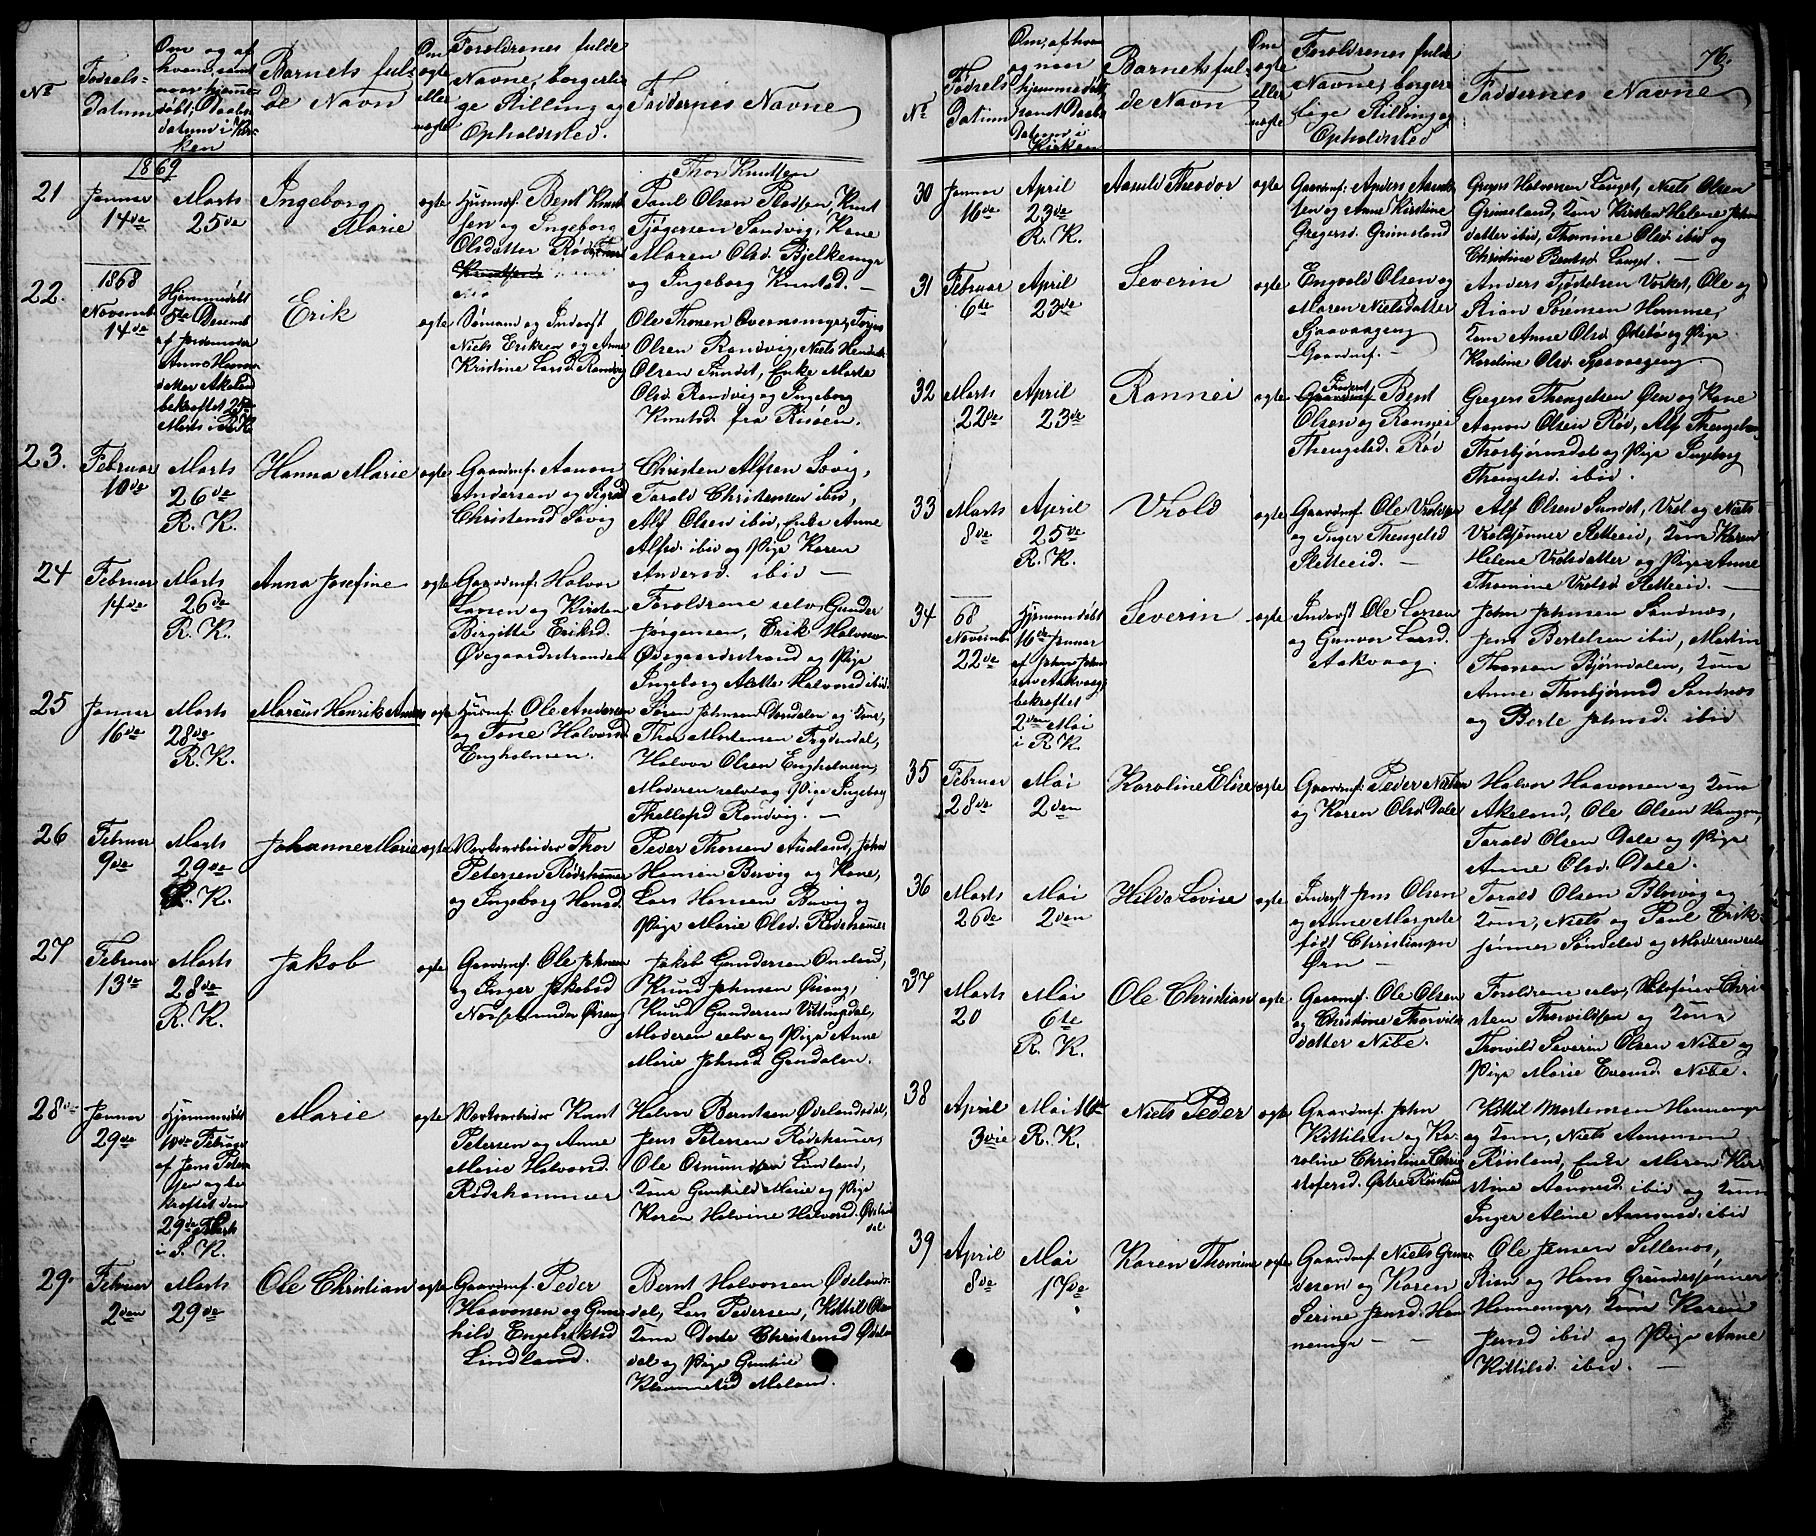 No
Fødsels-
Datum
Om og af
hvem, samt
naar hjemme-
døbt; Daabs-
datum i Kir-
ken
Barnets ful-
de Navn
Om
ægte
eller
uægte
Forældrenes fulde
Navne, borgerli-
ge Stilling og
Opholdssted.
Faddernes Navne
1869
21
Januar
14de
Marts
25de
Ingeborg
Marie
ægte
Husmf. Bent Knut-
sen og Ingeborg
Olsdatter
Thor Knutsen
Paul Olsen
Knut
Tjøgersen Sandvig, Kone
Maren Olsd. Bjelkemyr
og Ingeborg Knutsd. —
22.
1868
Novemb.
14de
Hjemmedøbt
Desemb.
af Jordemoder
Anne Haavors-
datter Akeland
bekræftet 25de
Marts i R. K.
Erik
ægte
Sømand og Inderst
Niels Eriksen og Anne
Kristine Larsd. Randvig
Ole Thorsen
Olsen Randvig, Niels
Olsen Sundet, Enke Marte
Olsd. Randvig og Ingeborg
Knutsd. fra Risøen.
23.
Februar
10de
Marts
26de
R. K.
Hanna Marie
ægte
Gaardmf. Aanon
Andersen og Sigrid
Christensd. Søvig
Christen Alfsen Søvig,
Torald Christensen ibid,
Alf Olsen ibid, Enke Anne
Alfsd. ibid og Pige Karen
Andersd. ibid —
24
Februar
14de
Marts
26de
R. K.
Anna Josefine
ægte
Gaardmf. Halvor
Larsen og Kirsten
Birgitte Eriksd.
Ødegaardsstranden
Forældrene selv, Gunder
Jørgensen, Erik Halvorsen
Ødegaardsstrand og Pige
Ingeborg Aletta Halvorsd ibid.
25
Januar
16de
Marts
28de
R. K.
Marcus Henrik Anders
ægte
Husmf. Ole Andersen
og Tone Halvorsd.
Engholmen.
Søren Johnsen
og Kone,
Thor Mortensen Frydendal,
Halvor Olsen Engholmen,
Moderen selv og Pige Ingeborg
Thellefsd Randvig. —
26
Februar
9de
Marts
29de
R. K.
Johanne Marie
ægte
Værksarbeider Thor
Petersen Rødshammer
og Ingeborg Hansd.
Peder Thorsen Auland, John
Hansen Buvig og Kone,
Lars Hansen Buvig og
Pige Marie Olsd. Rødshammer
27
Februar
13de
Marts
28de
R. K.
Jakob
ægte
Gaardmf. Ole Johnsen
og Inger Jakobsd
under
Jakob Gundersen Omlund,
Knud Johnsen Øisang,
Knud Gundersen Vittingsdal,
Moderen selv og Pige Anne
Marie Johnsd Gjendalen.
28de
Januar
29de
Hjemmedøbt
10de Februar
af Jens Peter-
sen og be-
kræftet den
29de Marts
i S. K.
Marie
ægte
Værksarbeider Knut
Petersen og Anne
Marie Halvorsd.
Rødshammer
Halvor Berntsen Ødelandsdal,
Jens Petersen Rødshammer,
Ole Osmundsen Lindland,
Kone Gunhild Marie og Pige
Karen Halvine Halvorsd. Ødelands-
dal
29.
Februar
2den
Marts
29de
Ole Christian
ægte
Gaardmf. Peder
Haavorsen og Gun-
hild Engebrektsd
Lindland.
Bernt Halvorsen Ødelands-
dal, Lars Pedersen, Kittil
Kone Dorte Christensd Ødelands-
dal og Pige Gunhild
No
Fødsels
Datum
Om, af hvem
og naar
hjemmedøbt
samt Daabs
Datum i
Kirken
Barnets ful-
de Navn
Om
ægte
eller
uægte
Forældrenes fulde
Navne, borger-
lige Stilling og
Opholdssted
Faddernes Navne
76.
30
Januar
16de
April
23de
R. K.
Aanile Theodor
ægte
Gaardmf. Anders
sen og Anne Kirstine
Gregersd. Grimsland
Gregers Halvorsen Langet, Niels Olsen
Grimsland, Kone Kirsten Helene John-
datter ibid, Thomine Olsd. ibid og
Christine Bentsd Langet. —
31
Februar
6te
April
23de
Severin
ægte
Engvald Olsen og
Maren Nielsdatter
Sjaavaageng
Gaardmf. —
Anders Tjødelsen
Ole og
Stian Sørensen Hammer,
Kone Anne Olsd. Ødebø og Pige
Karoline Olsd. Sjaavaageng
32
Marts
22de
April
23de
Rannei
ægte
Inderst
Gaardmf. Bent
Olsen og Rannei
Thengelsd. Rød
Gregers Thengelsen Øen og Kone
Aanon Olsen Rød, Alf Thengelsen
Thorbjørnsdal og Pige Ingeborg
Thengelsd. ibid.
33
Marts
8de
April
25de
R. K.
Vrold
ægte
Gaardmf. Ole Vroldsen
og Inger Thengelsd
Sletteeid. —
Alf Olsen Sundet, Vrol og Niels
Vroldsønner Sletteeid, Kone Karen
Helene Vrolsdatter og Pige Anne
Thomine Vrolsd Sletteeid. —
34
68
Novemb.
22de
Hjemmedøbt
16de Januar
af John John-
sen Aakvaag,
bekræftet
2den Mai
i R. K.
Severin
ægte
Inderst Ole Larsen
og Gunvor Larsd.
Aakvaag.
John Johnsen Sandnes,
Jens Bertelsen ibid, Martin
Thorsen Bjørndalen, Kone
Anne Thorbjørnsd Sandnes
og Berte Johnsd. ibid
35
Februar
28de
Mai
2den
Karoline Elise
ægte
Gaardmf. Peder
og Karen Olsd. Dale
Halvor Haavorsen og Kone
Akeland, Ole Olsen Haugen,
Torald Olsen Dale og Pige
Anne Olsd. Dale.
36
Marts
26de
Mai
2den
Hilda Lovise
ægte
Inderst Jens Olsen
og Anne Margrete
født Christiansen
Ørn —
Torald Olsen Blaavig og
Kone, Niels og Paul Erik-
sønner Søndeled og Moderen selv
37
Marts
20
Mai
6te
R. K.
Ole Christian
ægte
Gaardmf. Ole Olsen
og Christine Thorvilds-
datter Nibe.
Forældrene selv,
Chri-
sten Thorvildsen og Kone
Thorvild Severin Olsen Nibe og
Pige Marie Evensd. Nibe.
38
April
3die
Mai 16de
R. K.
Niels Peder
ægte
Gaardmf. John
Kittilsen og Ka-
roline Christine Chri-
stofersd. Østre Risland
Kittil Mortensen Hannemyr
og Kone, Niels Aanonsen
Risland, Enke Maren Kir-
stine Aanonsd. ibid og Kone
Inger Aline Aanonsd. ibid
39
April
8de
Mai
17de
Karen Thomine
ægte
Gaardmf. Niels Grun-
desen og Karen
Serine Jensd. Han-
nemyr — —
Ole Jensen Sellenos,
Stian og Hans Grundesønner
Hannemyr, Kone Karen
Jensd ibid og Pige Anne
Kittilsd. ibid. —